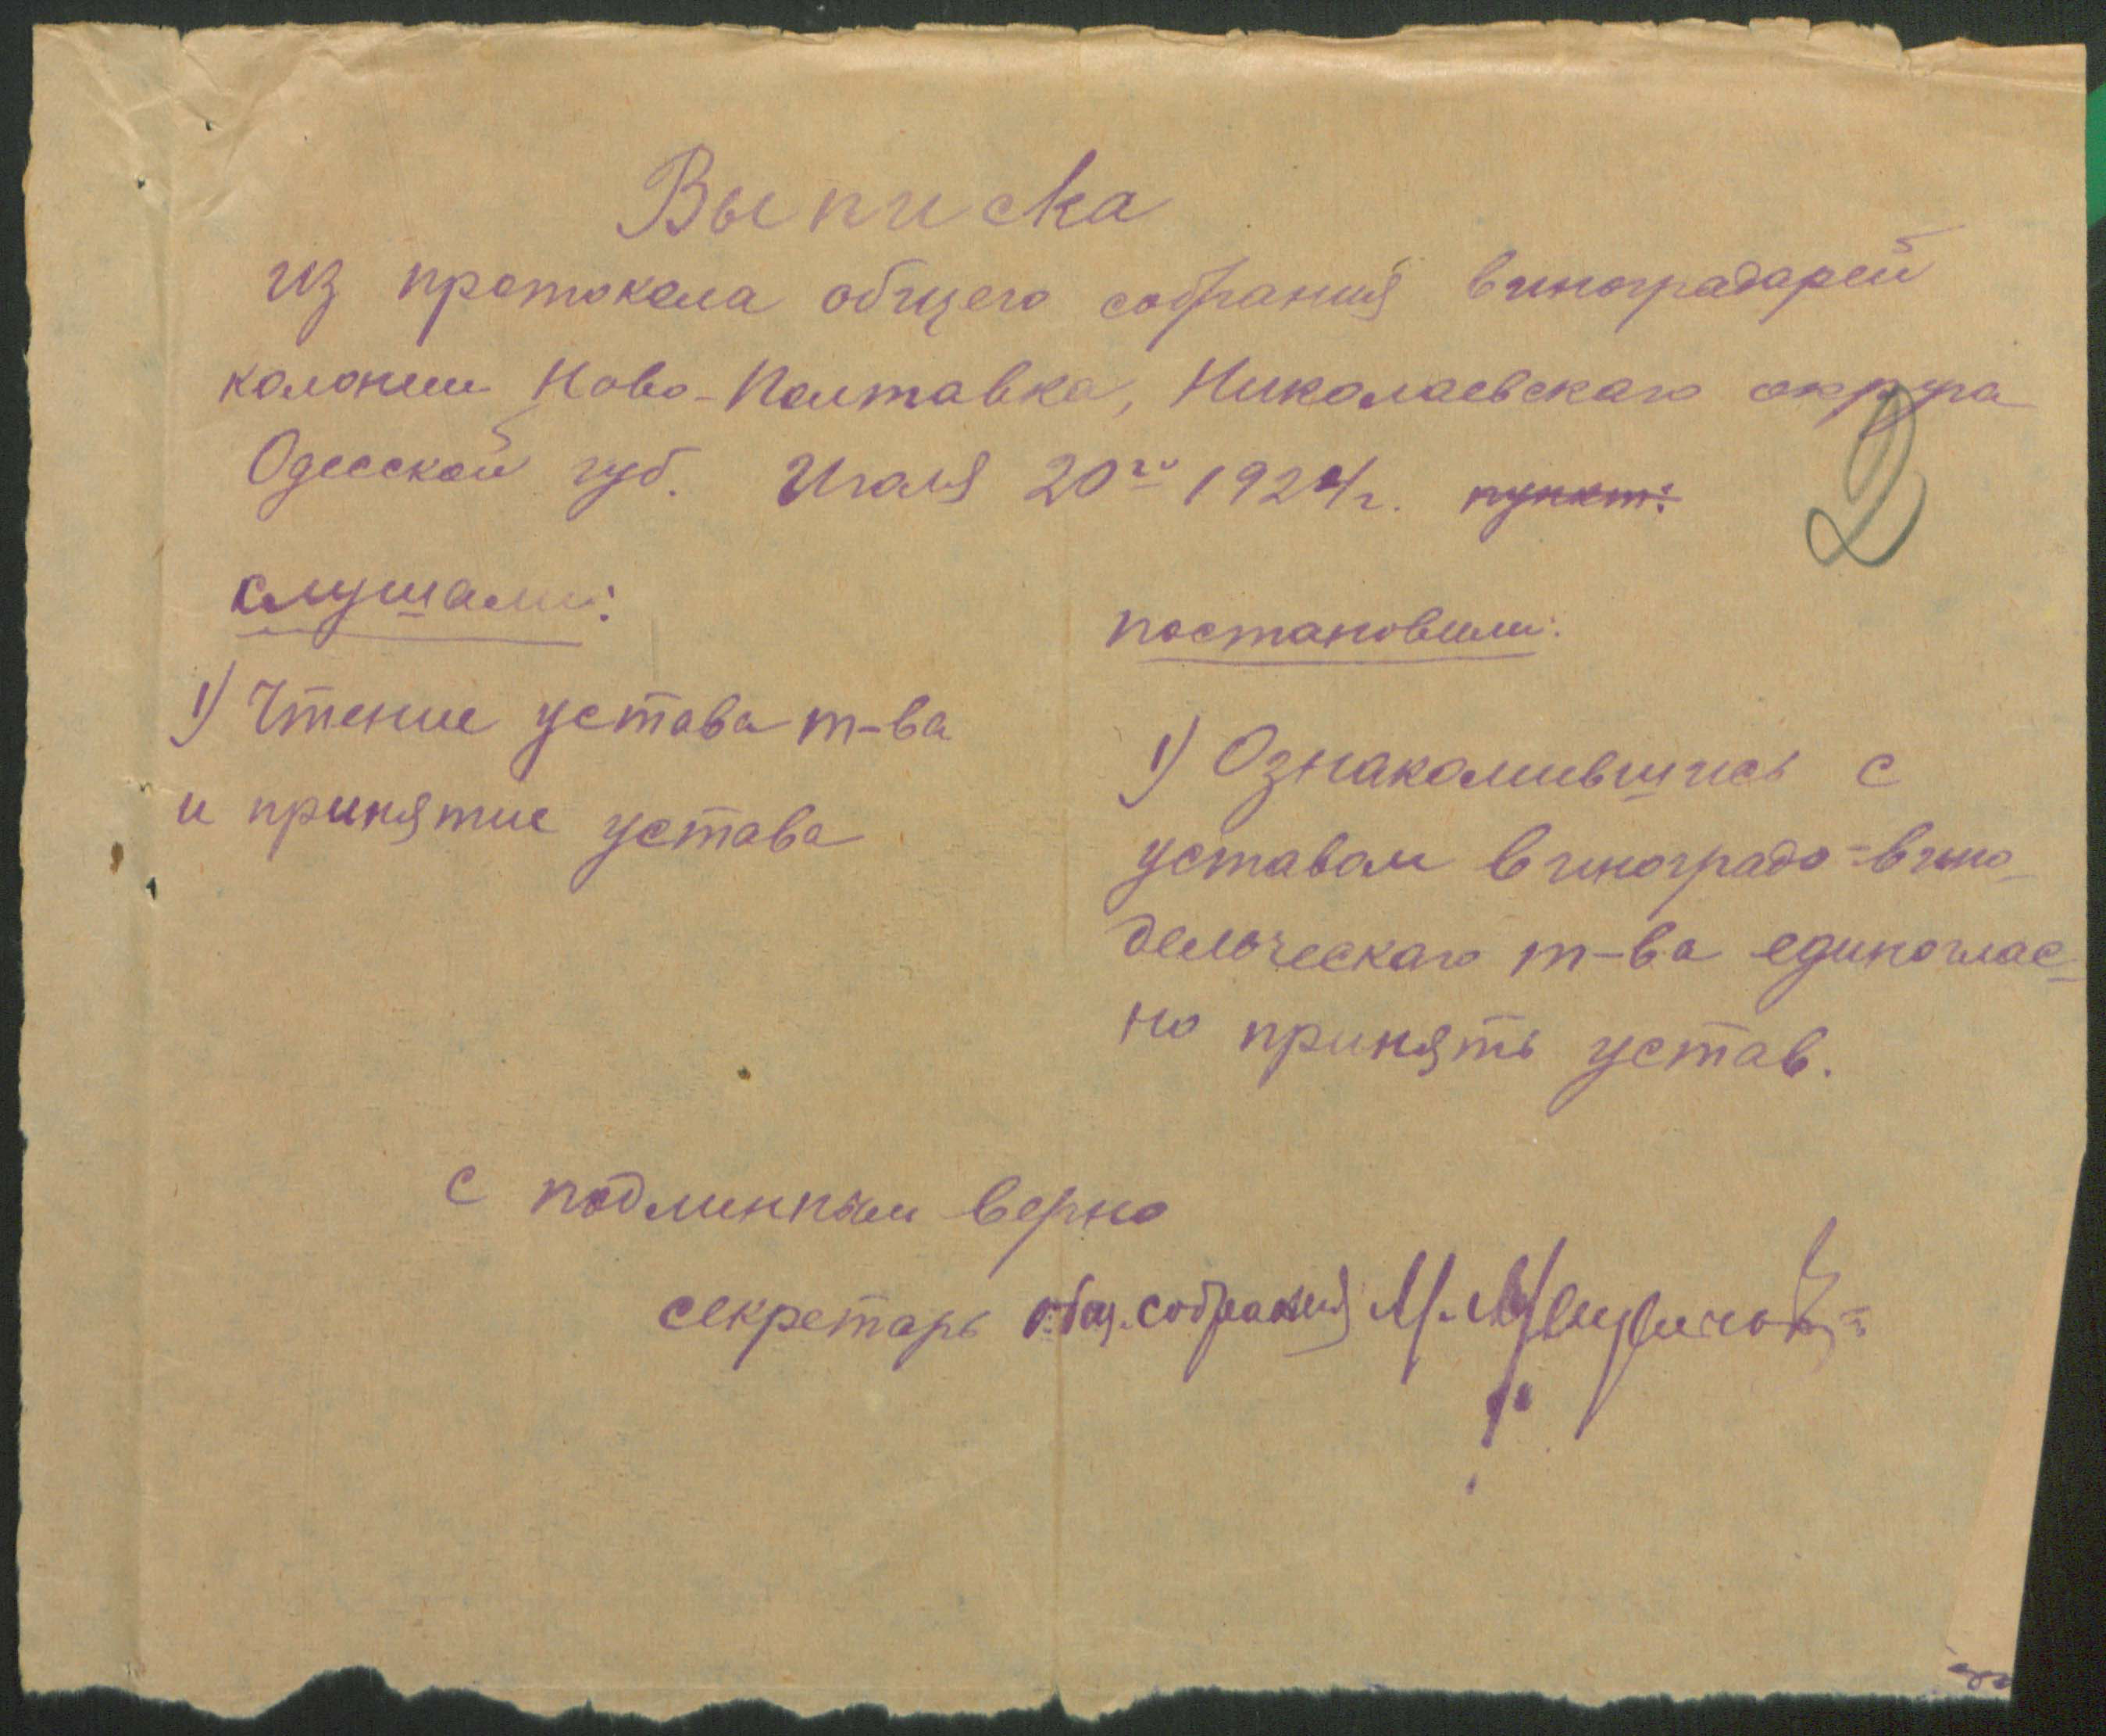 Выписка
из протокола общего собрания виноградарей
колонии Ново-Полтавка, Николаевскаго округа
Одесской губ. Июля 20го 1924г. пункт:
2
слушали:
1) Чтение устава т-ва
и принятие устава
постановили:
1) Ознакомившись с
уставом виноградо-вино-
дельческаго т-ва единоглас-
но принять устав.
С подлинным верно
секретарь общ. собрания М.